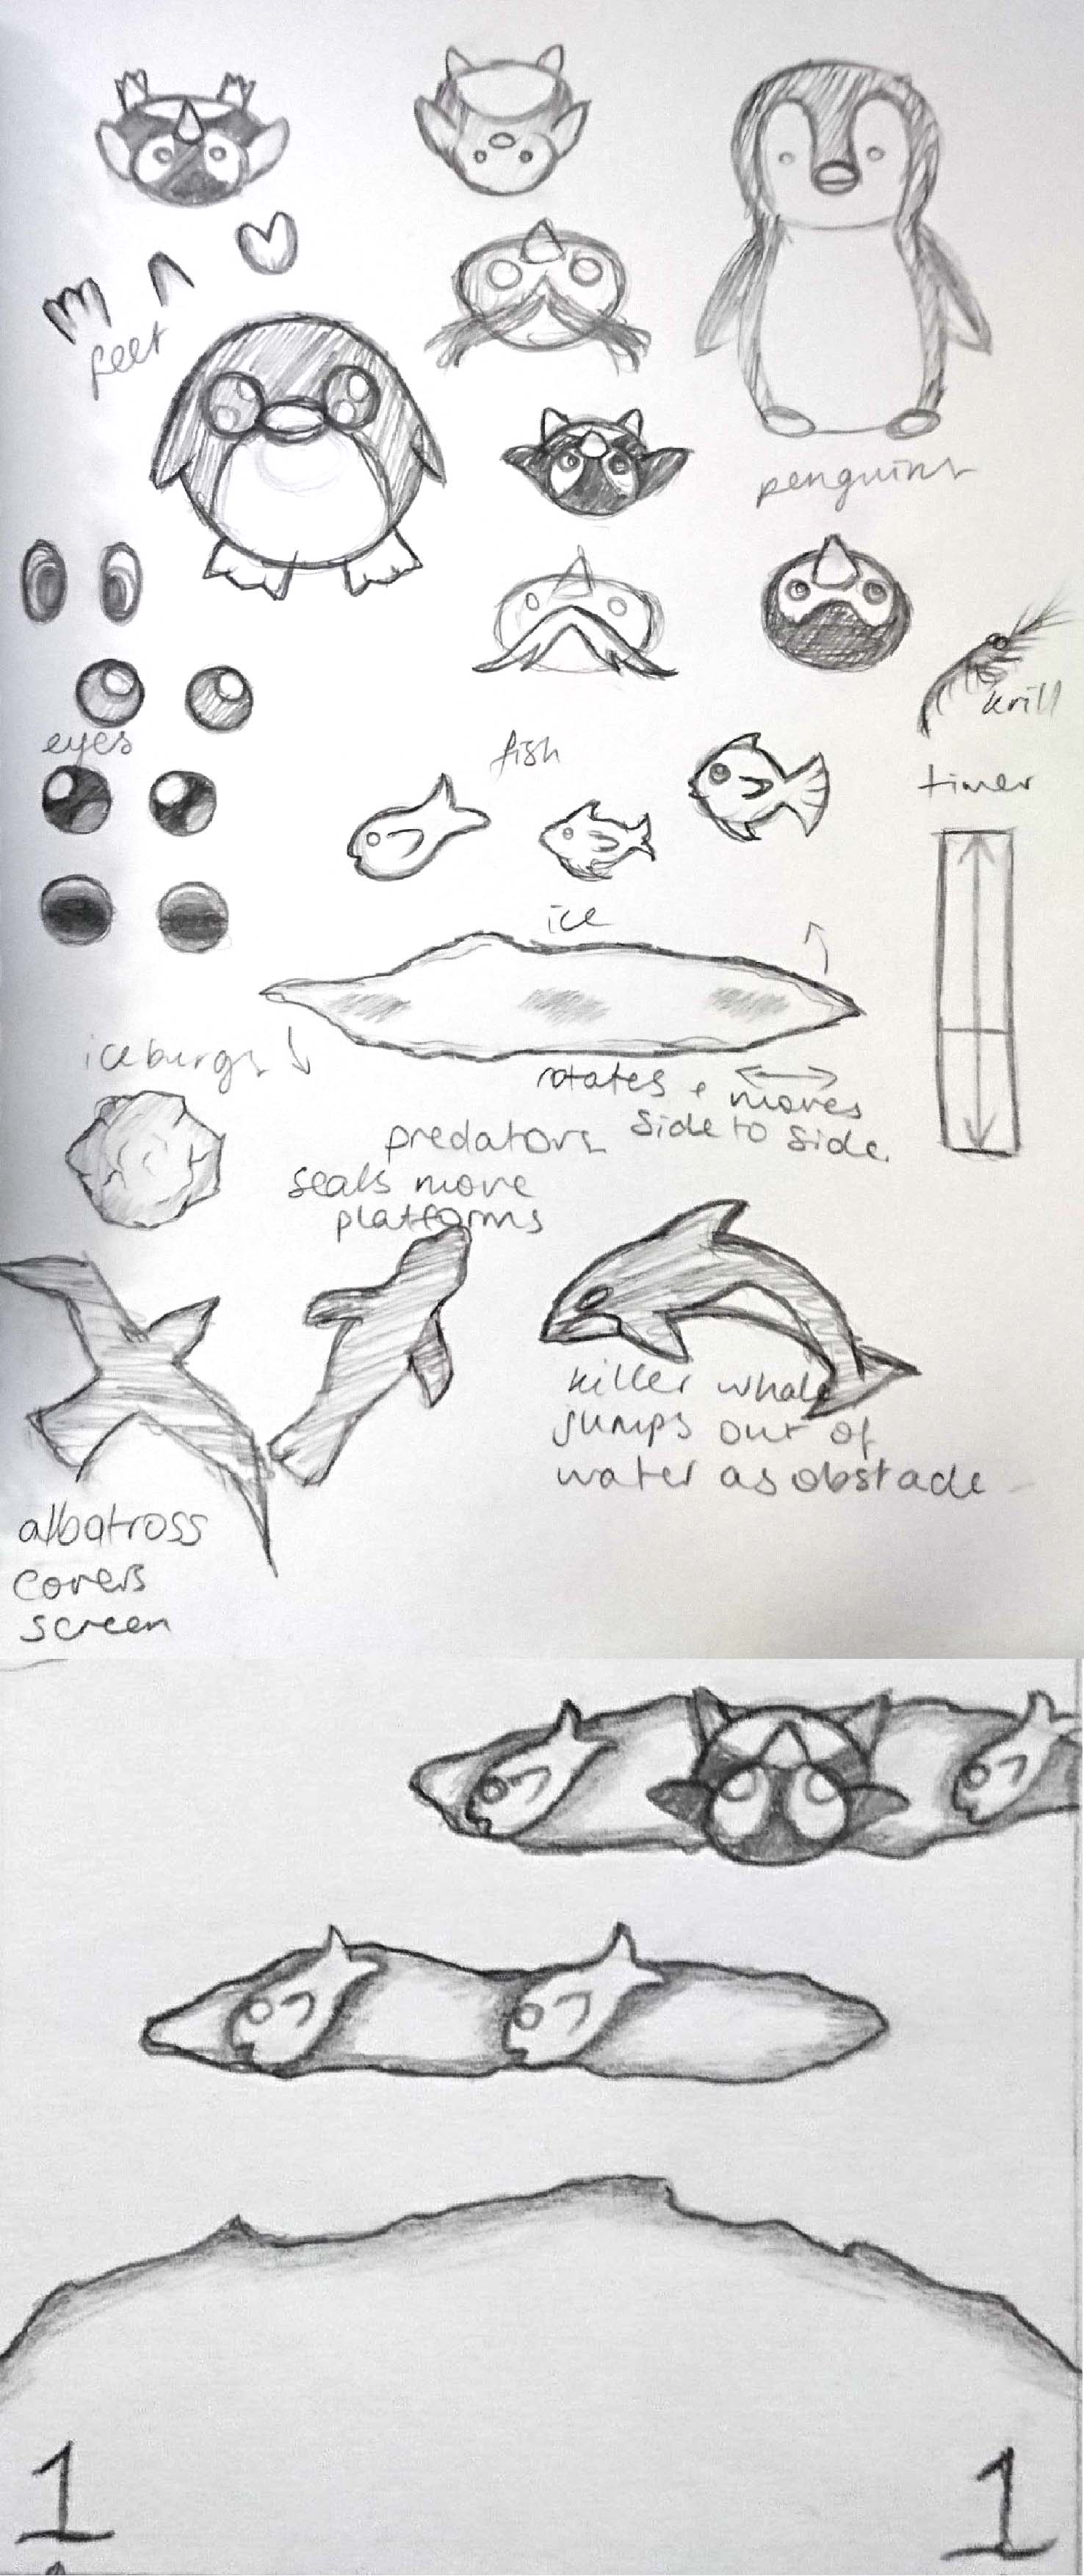 feet
penguins
krill
eyes
fish
timer
ice
iceburgs
rotates + moves
side to side
predators
seals move
platforms
killer whale
jumps out of
water as obstacle
albatross
covers
screen
1
1